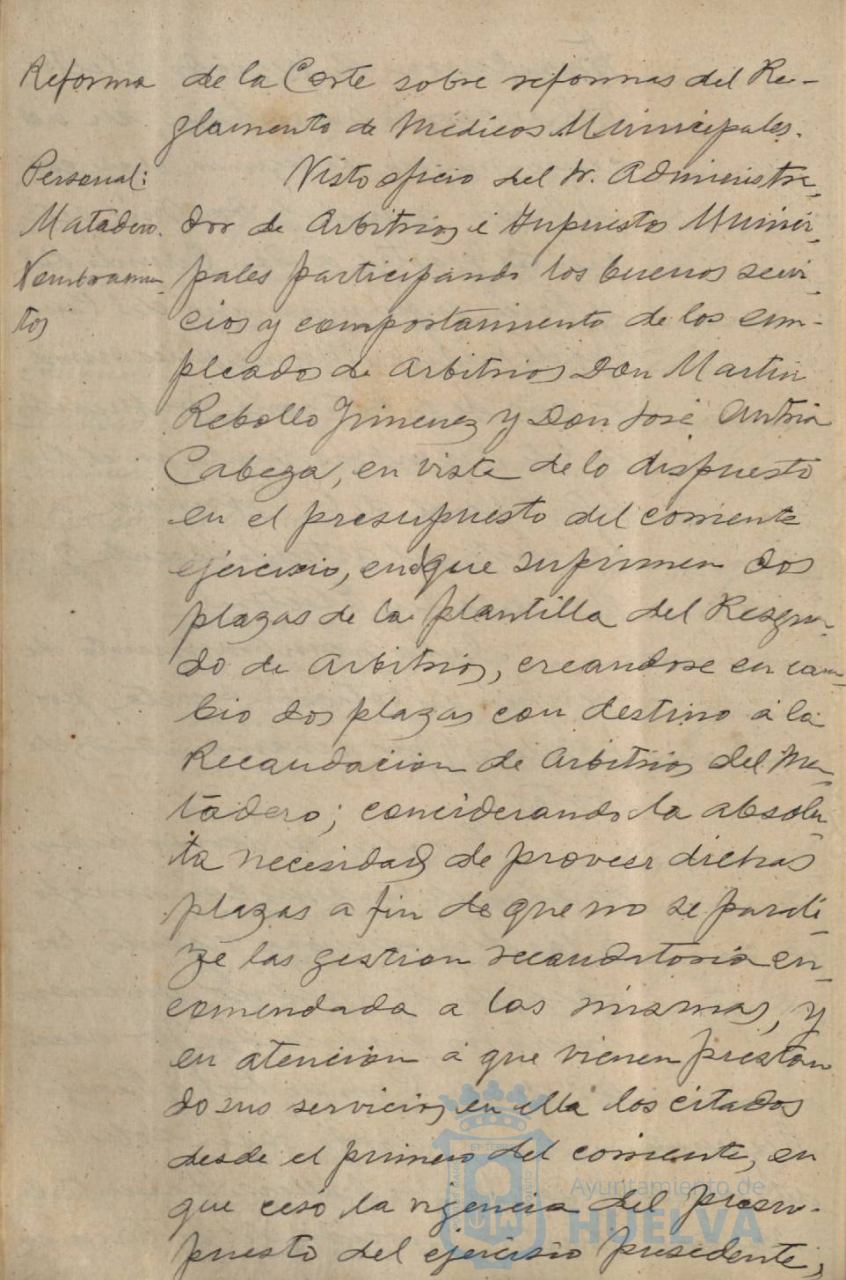 Reforma de la Corte sobre reformas del Re-
glamento de Médicos Municipales.
Personal: Visto oficio del Sr. Administra-
Matadero. dor de Arbitrios é Impuestos Munici-
Nombramien- pales participando los buenos servi-
tos cios y comportamiento de los em-
pleados de Arbitrios Don Martin
Rebollo Jimenez y Don José
Cabeza, en vista de lo dispuesto
en el presupuesto del corriente
ejercicio, en que suprimen dos
plazas de la plantilla del Resguar-
do de Arbitrios, creandose en cam-
bio dos plazas con destino á la
Recaudacion de Arbitrios del Ma-
tadero; considerando la absolu-
ta necesidad de proveer dichas
plazas a fin de que no se parali-
ze las gestion recaudatoria en-
comendada a las mismas, y
en atencion á que vienen prestan-
do sus servicios en ella los citados
desde el primero del corriente, en
que cesó la vigencia del presu-
puesto del ejercisio presedente,
Ayuntamiento de
HUELVA